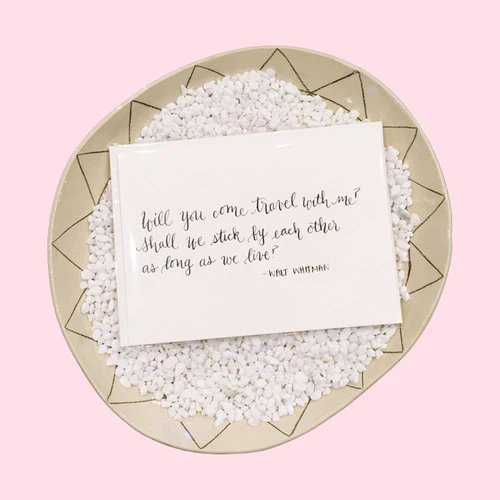 Will you come travel with me?
Shall we stick by each other
as long as we live?
-WALT WHITMAN